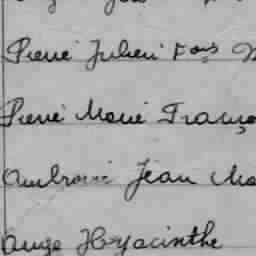 Pierre Julien Fcois
Pierre Marie Franço
Ambroise Jean Ma
Ange Hyacinthe